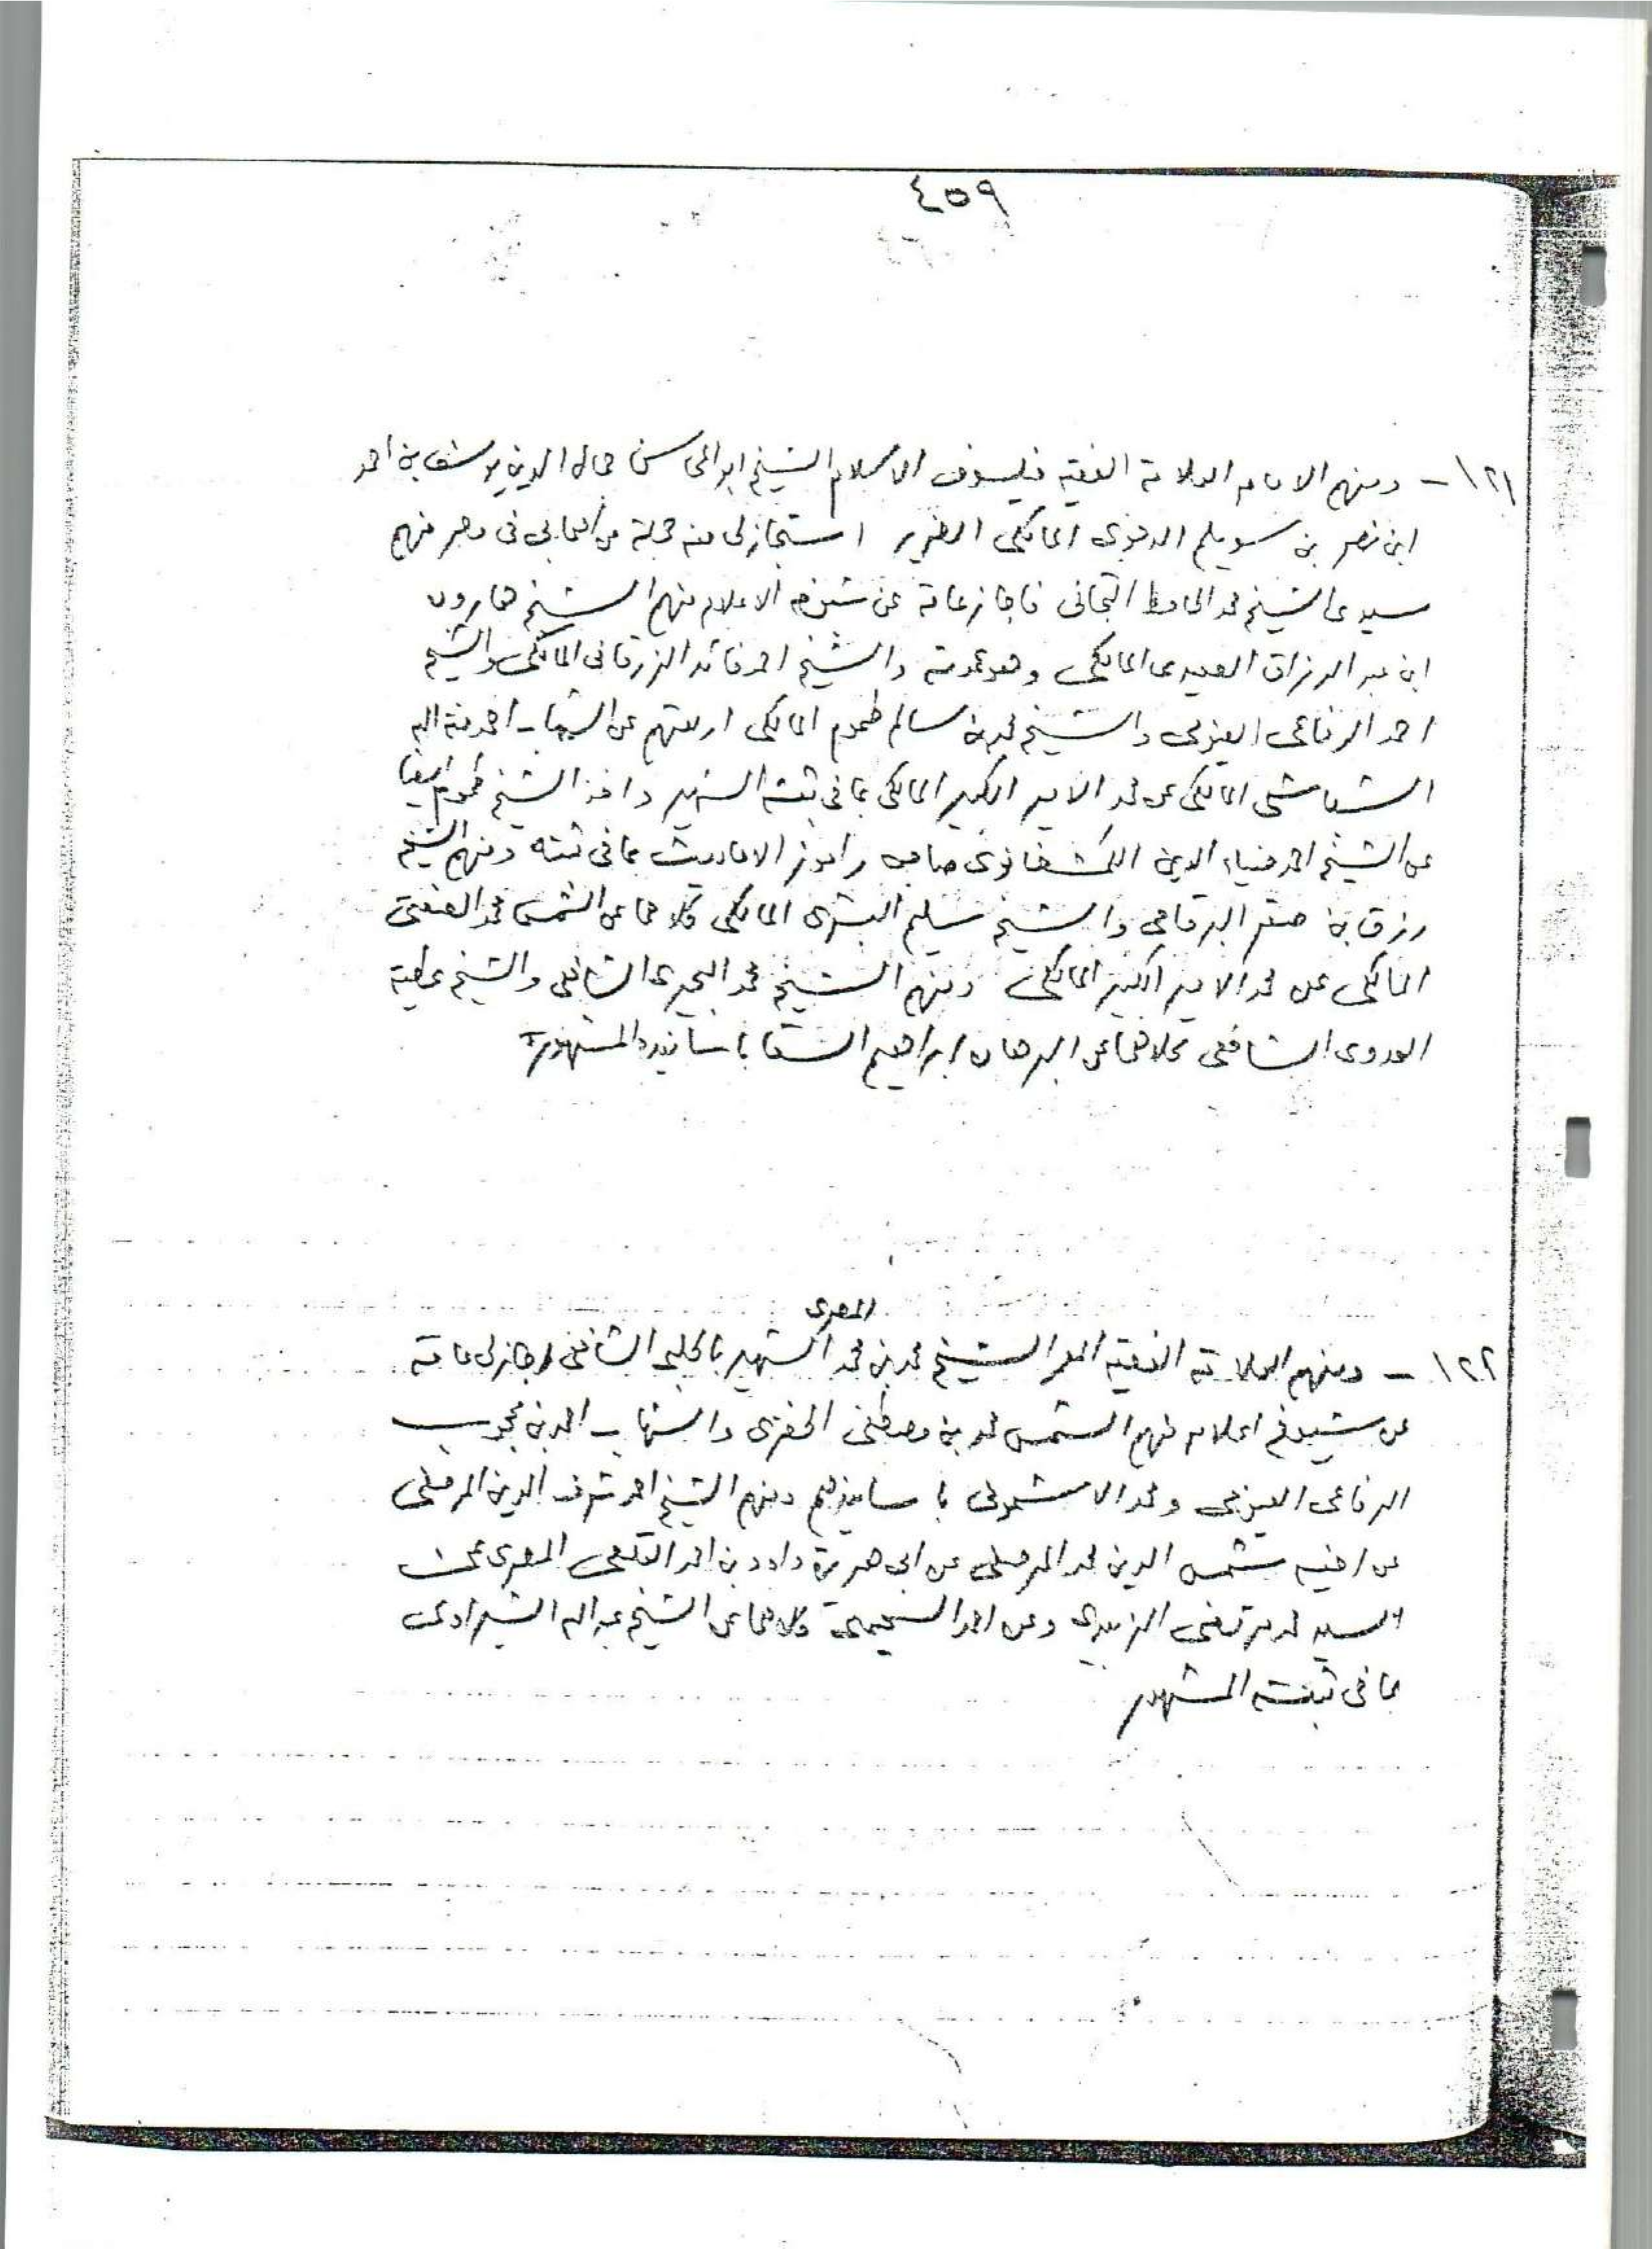 ٤٥٩
١٢١ - ومنهم الامام العلامة الفقيه فيلسوف الاسلام الشيخ ابو المحاسن جمال الدين يوسف بن احمد
ابن نصر بن سويلم الدجوى المالكى الضرير استجاز لى منه جملة من اصحابى فى مصر منهم
سيدى الشيخ محمد الحافظ التجانى فاجاز عامة عن شيوخه الاعلام منهم الشيخ هارون
ابن عبد الرزاق العبيدى المالكى وهو عمدته والشيخ احمد فائد الزرقانى المالكى والشيخ
احمد الرفاعى الفيومى والشيخ محمد بن سالم طموم المالكى اربعتهم عن الشهاب احمد منة الله
الشباسى المالكى عن محمد الامير الكبير المالكى بما فى ثبته الشهير واخذ الشيخ طموم ايضا
عن الشيخ احمد ضياء الدين الكمشخانوى صاحب راموز الاحاديث بما فى ثبته ومنهم الشيخ
رزق بن صقر البرقامى والشيخ سليم البشرى المالكى كلاهما عن الشمس محمد الصفتى
المالكى عن محمد الامير الكبير المالكى ومنهم الشيخ محمد البحيرى الشافعى والشيخ عطية
العدوى الشافعى كلاهما عن البرهان ابراهيم السقا باسانيده المشهورة
المصرى
١٢٢ - ومنهم العلامة الفقيه المعمر الشيخ محمد بن محمد الشهير بالحلبى الشافعى اجاز لى عامة
عن شيوخ اعلام منهم الشمس محمد بن مصطفى الخضرى والشهاب احمد بن محجوب
الرفاعى الفيومى ومحمد الاشمونى باسانيدهم ومنهم الشيخ احمد شرف الدين المرصفى
عن اخيه شمس الدين محمد المرصفى عن ابى هريرة داود بن احمد القلعى المصرى عن
السيد محمد مرتضى الزبيدى وعن احمد السحيمى كلاهما عن الشيخ عبد الله الشبراوى
بما فى ثبته المشهور